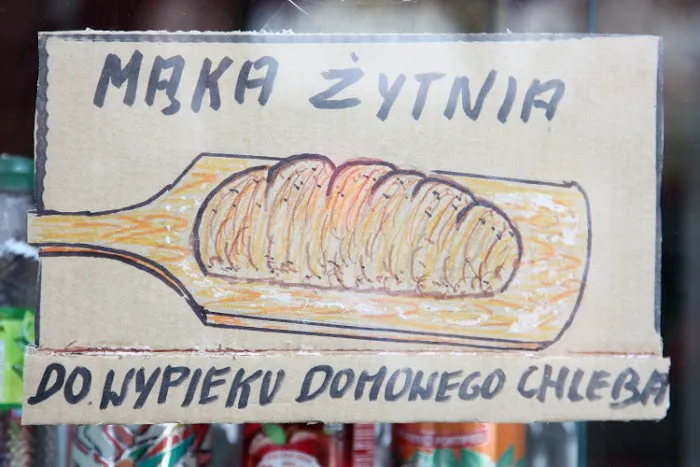 MĄKA ŻYTNIA
DO WYPIEKU DOMOWEGO CHLEBA